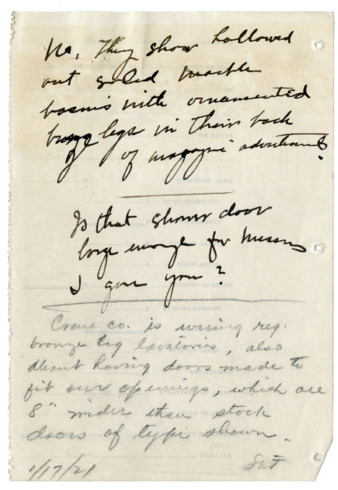 No, They show hollowed
out solid marble
basins with ornamented
legs in their back
of magazine advertisements
Is that shower door
large enough for
I gave you?
Crane Co. is wiring reg.
bronze leg lavatories, also
about having doors made to
fit our openings, which are
8" wider than stock
doors of type shown.
1/17/21